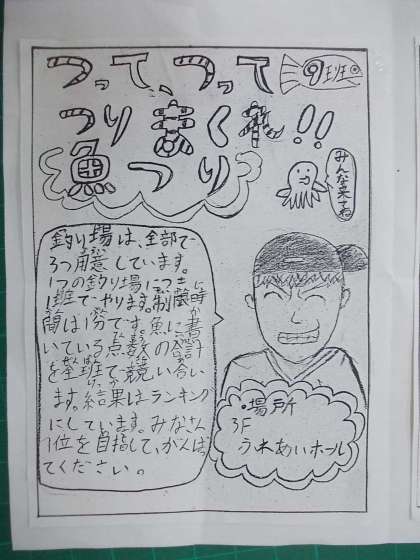 つって、つって
9班
つりまくれ!!
魚つり
みんな来てね
釣り場は、全部で
3つ用意しています。
1つの釣り場につき
1班でやります。制限時
間は1分です。魚に書
いている点数の合計
を全班で競い合い
ます。結果はランキング
にしています。みなさん
1位を目指して、がんばっ
てください。
・場所
3F
ふれあいホール